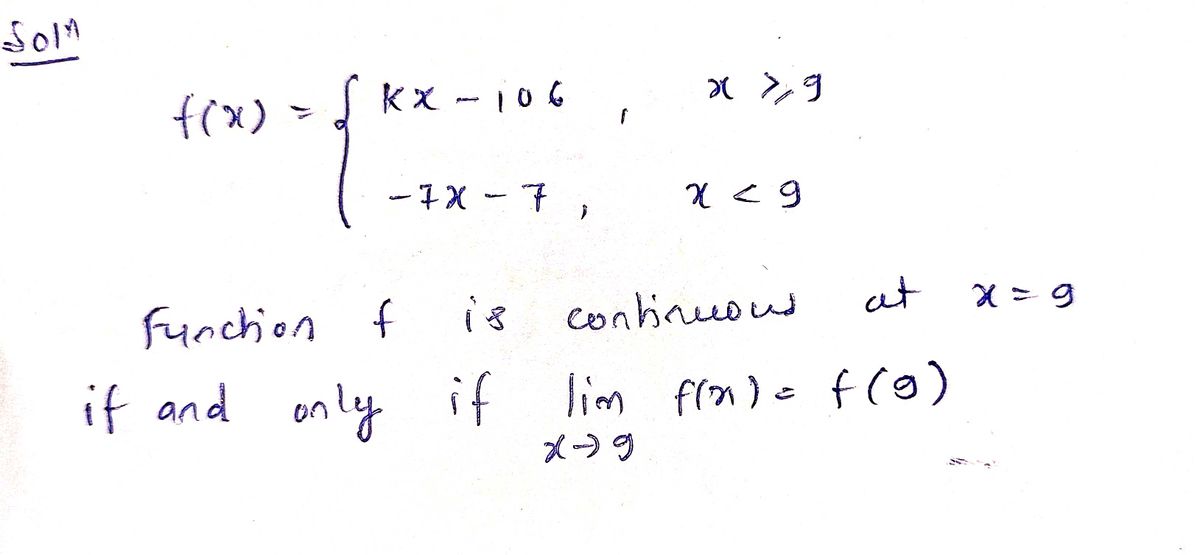 Solⁿ
f(x) = { kx - 106 , x ≥ 9
-7x - 7 , x < 9
Function f is continuous at x = 9
if and only if lim f(x) = f(9)
x→9